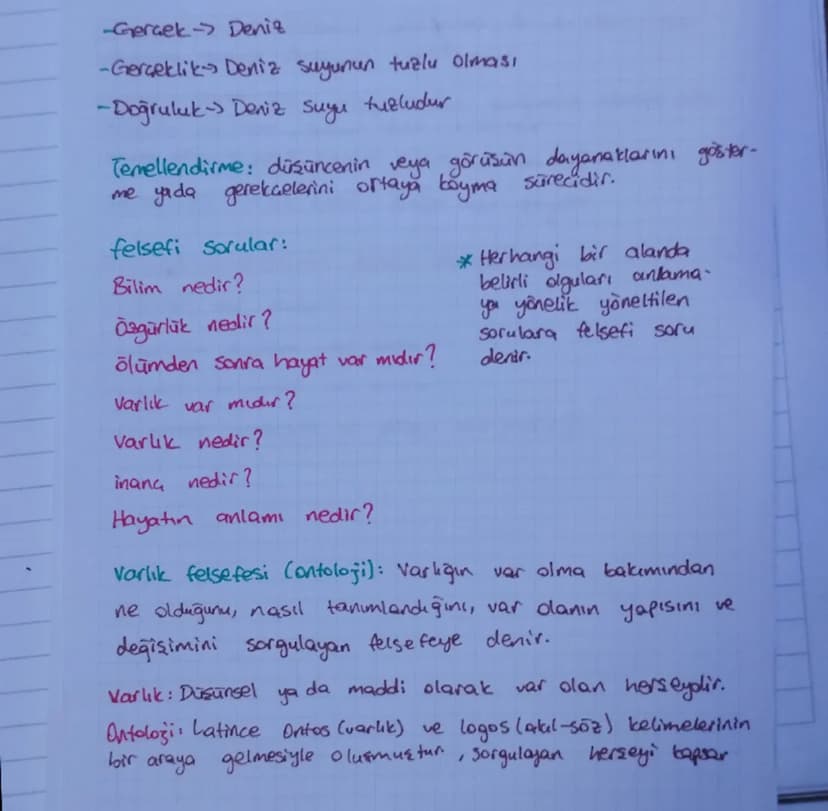 -Gerçek-> Deniz
-Gerçeklik-> Deniz suyunun tuzlu olması
-Doğruluk-> Deniz suyu tuzludur
Temellendirme: düşüncenin veya görüşün dayanaklarını göster-
me yada gerekçelerini ortaya koyma sürecidir.
felsefi sorular:
Bilim nedir?
Özgürlük nedir?
ölümden sonra hayat var mıdır?
Varlık var mıdır?
Varlık nedir?
inanç nedir?
Hayatın anlamı nedir?
* Herhangi bir alanda
belirli olguları anlama-
ya yönelik yöneltilen
sorulara felsefi soru
denir.
Varlık felsefesi (ontoloji): Varlığın var olma bakımından
ne olduğunu, nasıl tanımlandığını, var olanın yapısını ve
değişimini sorgulayan felsefeye denir.
Varlık: Düşünsel ya da maddi olarak var olan herşeydir.
Ontoloji: Latince Ontos (varlık) ve logos (akıl-söz) kelimelerinin
bir araya gelmesiyle oluşmuştur, sorgulayan herşeyi kapsar